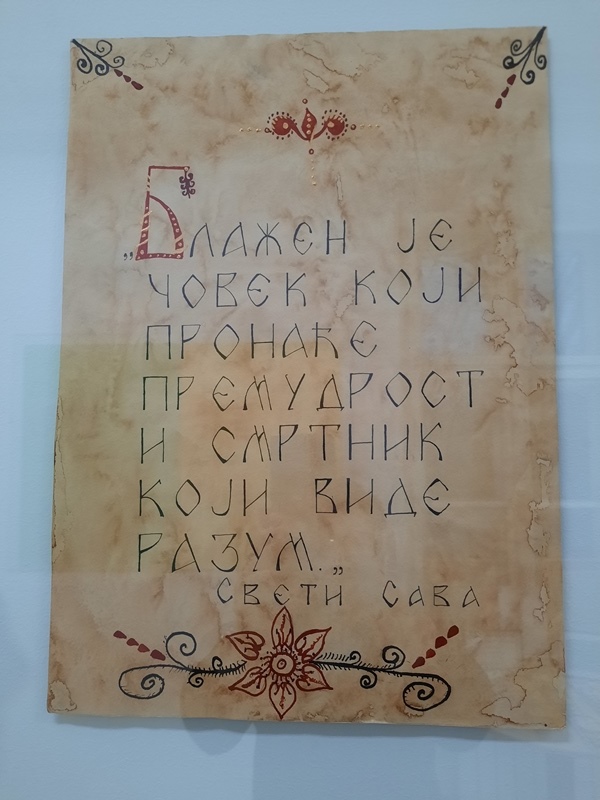 „Блажен је
човек који
пронађе
премудрост
и смртник
који виде
разум.„
Свети Сава